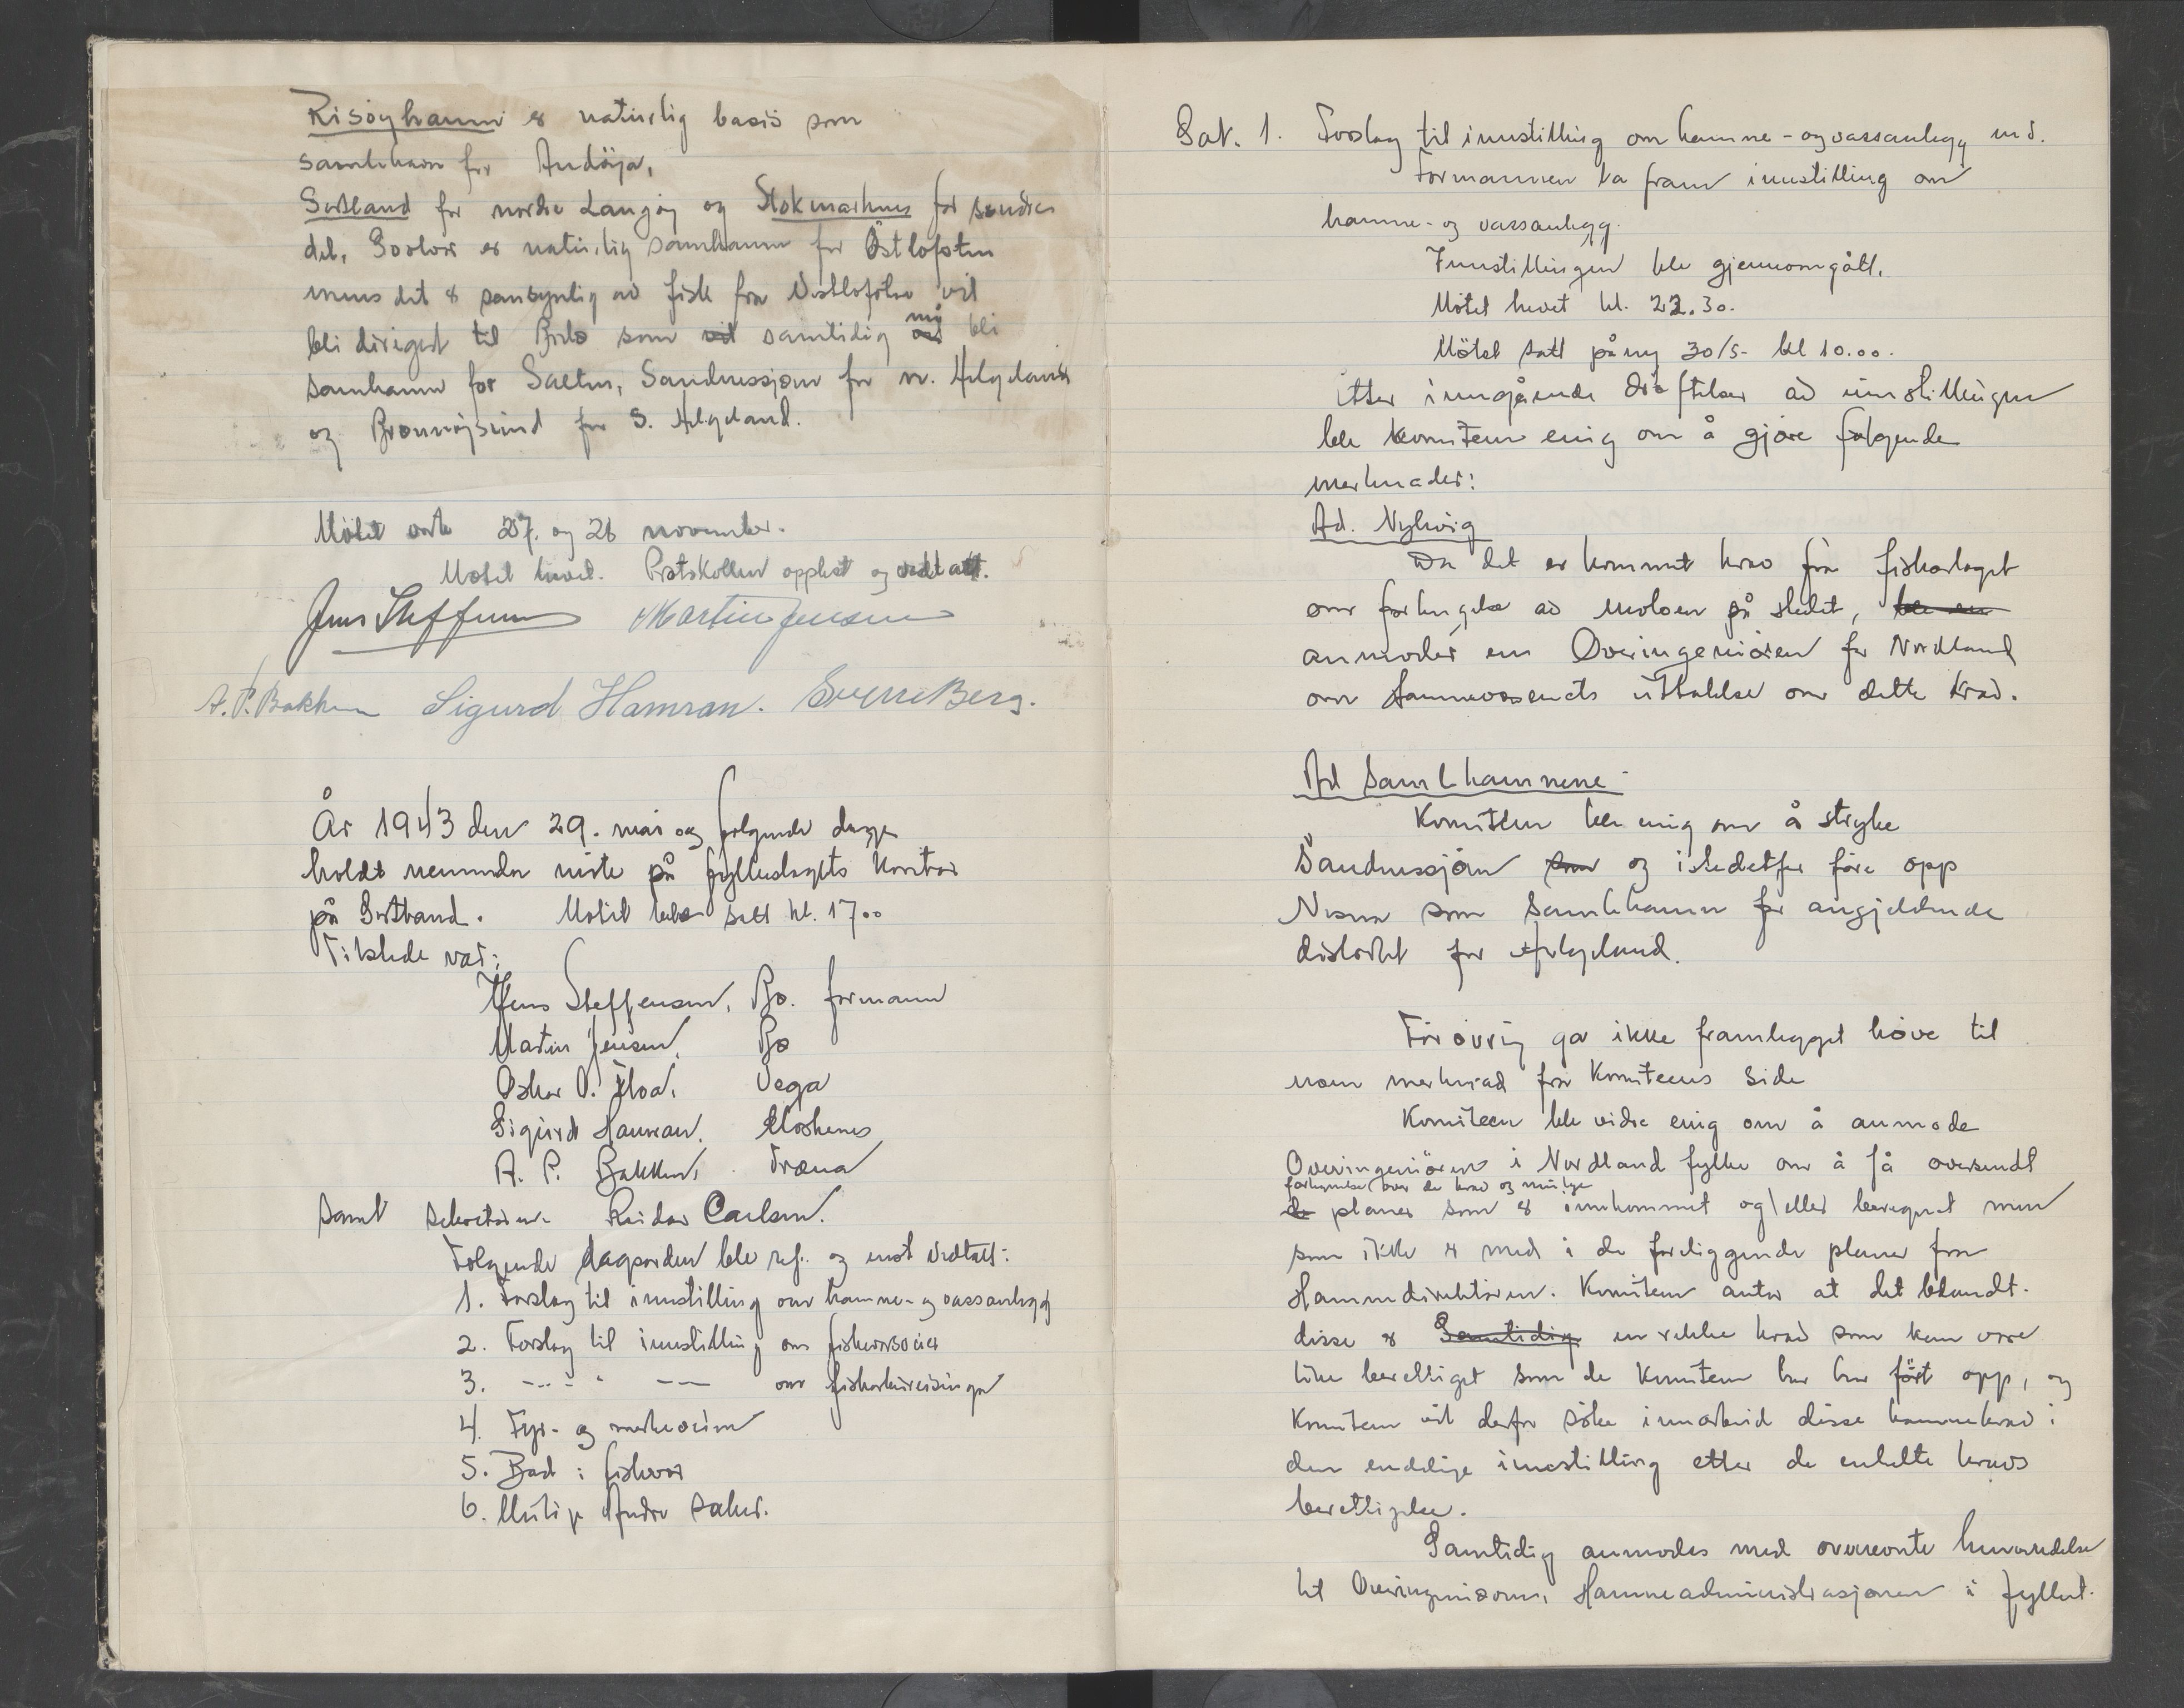 Risøyhamn er naturlig basis som
samlehavn for Andöya,
Sortland for nordre Langöy og Stokmarknes for søndre
del, Svolvær er naturlig samhamn for Östlofoten
mens det er sansynlig at fisk fra Vestlofoten vil
bli dirigert til Bodø som samtidig må bli
samhamn for Salten, Sandnessjøen for n. Helgeland
og Brønnøysund for S. Helgeland.
Mötet varte 27. og 28 november.
Møtet hevet. Protokollen opplest og vedtatt.
Jens Steffensen Martin Jensen
A. P. Bakken Sigurd Hamran. Sverre Berg.
År 1943 den 29. mai og følgende dager
holdt nemnda møte på fylkeslagets kontor
på Sortland. Møtet ble satt kl. 17⁰⁰
Tilstede var:
Jens Steffensen, Bø. formann
Martin Jensen, Bø
Oskar O. Floa, Vega
Sigurd Hamran, Moskenes
A. P. Bakken, Træna
samt sekretæren Reidar Carlsen.
Følgende dagsorden ble ref. og enst vedtatt:
1. Forslag til innstilling om hamne- og vassanlegg
2. Forslag til innstilling om fiskeværsveier
3. -- - " -- om fiskarheimreisinga
4. Fyr- og merkevesen
5. Bad i fiskevær
6. Mulige Andre saker.
Sak. 1. Forslag til innstilling om hamne- og vassanlegg m.d.
Formannen la fram innstilling om
hamne- og vassanlegg.
Innstillingen ble gjennomgått.
Mötet hevet kl. 22.30.
Mötet satt på ny 30/5- kl 10.00.
Etter inngående drøftelser av innstillingen
ble komiteen enig om å gjøre følgende
merknader:
Ad. Nykvåg
Da det er kommet krav frå fiskarlaget
om forlengelse av moloen på stedet, ble en
anmoder en Overingeniören for Nordland
om Hamnevesenets uttalelse om dette krav.
Ad Samlehamnene
Komiteen ble enig om å stryke
Sandnessjøen som og istedetfor føre opp
Nesna som samlehamn for angjeldende
distrikt for Helgeland.
För övrig ga ikke framlegget høve til
noen merknad fra Komiteens side
Komiteen ble vidre enig om å anmode
Overingeniören i Nordland fylke om å få oversendt
fortegnelse over de krav og mulige
de planer som er innkommet og/eller beregnet men
som ikke er med i de foreliggende planer fra
Hamnedirektøren. Komiteen antar at det blandt
disse er Samtidig en rekke krav som kan være
like berettiget som de Komiteen her har ført opp, og
Komiteen vil derfor söke innarbeid disse hamnekrav i
den endelige innstilling etter de enkelte kravs
berettigelse.
Samtidig anmodes med ovenevnte henvendelse
til Overingeniøren, Hamneadministrasjonen i fylket.